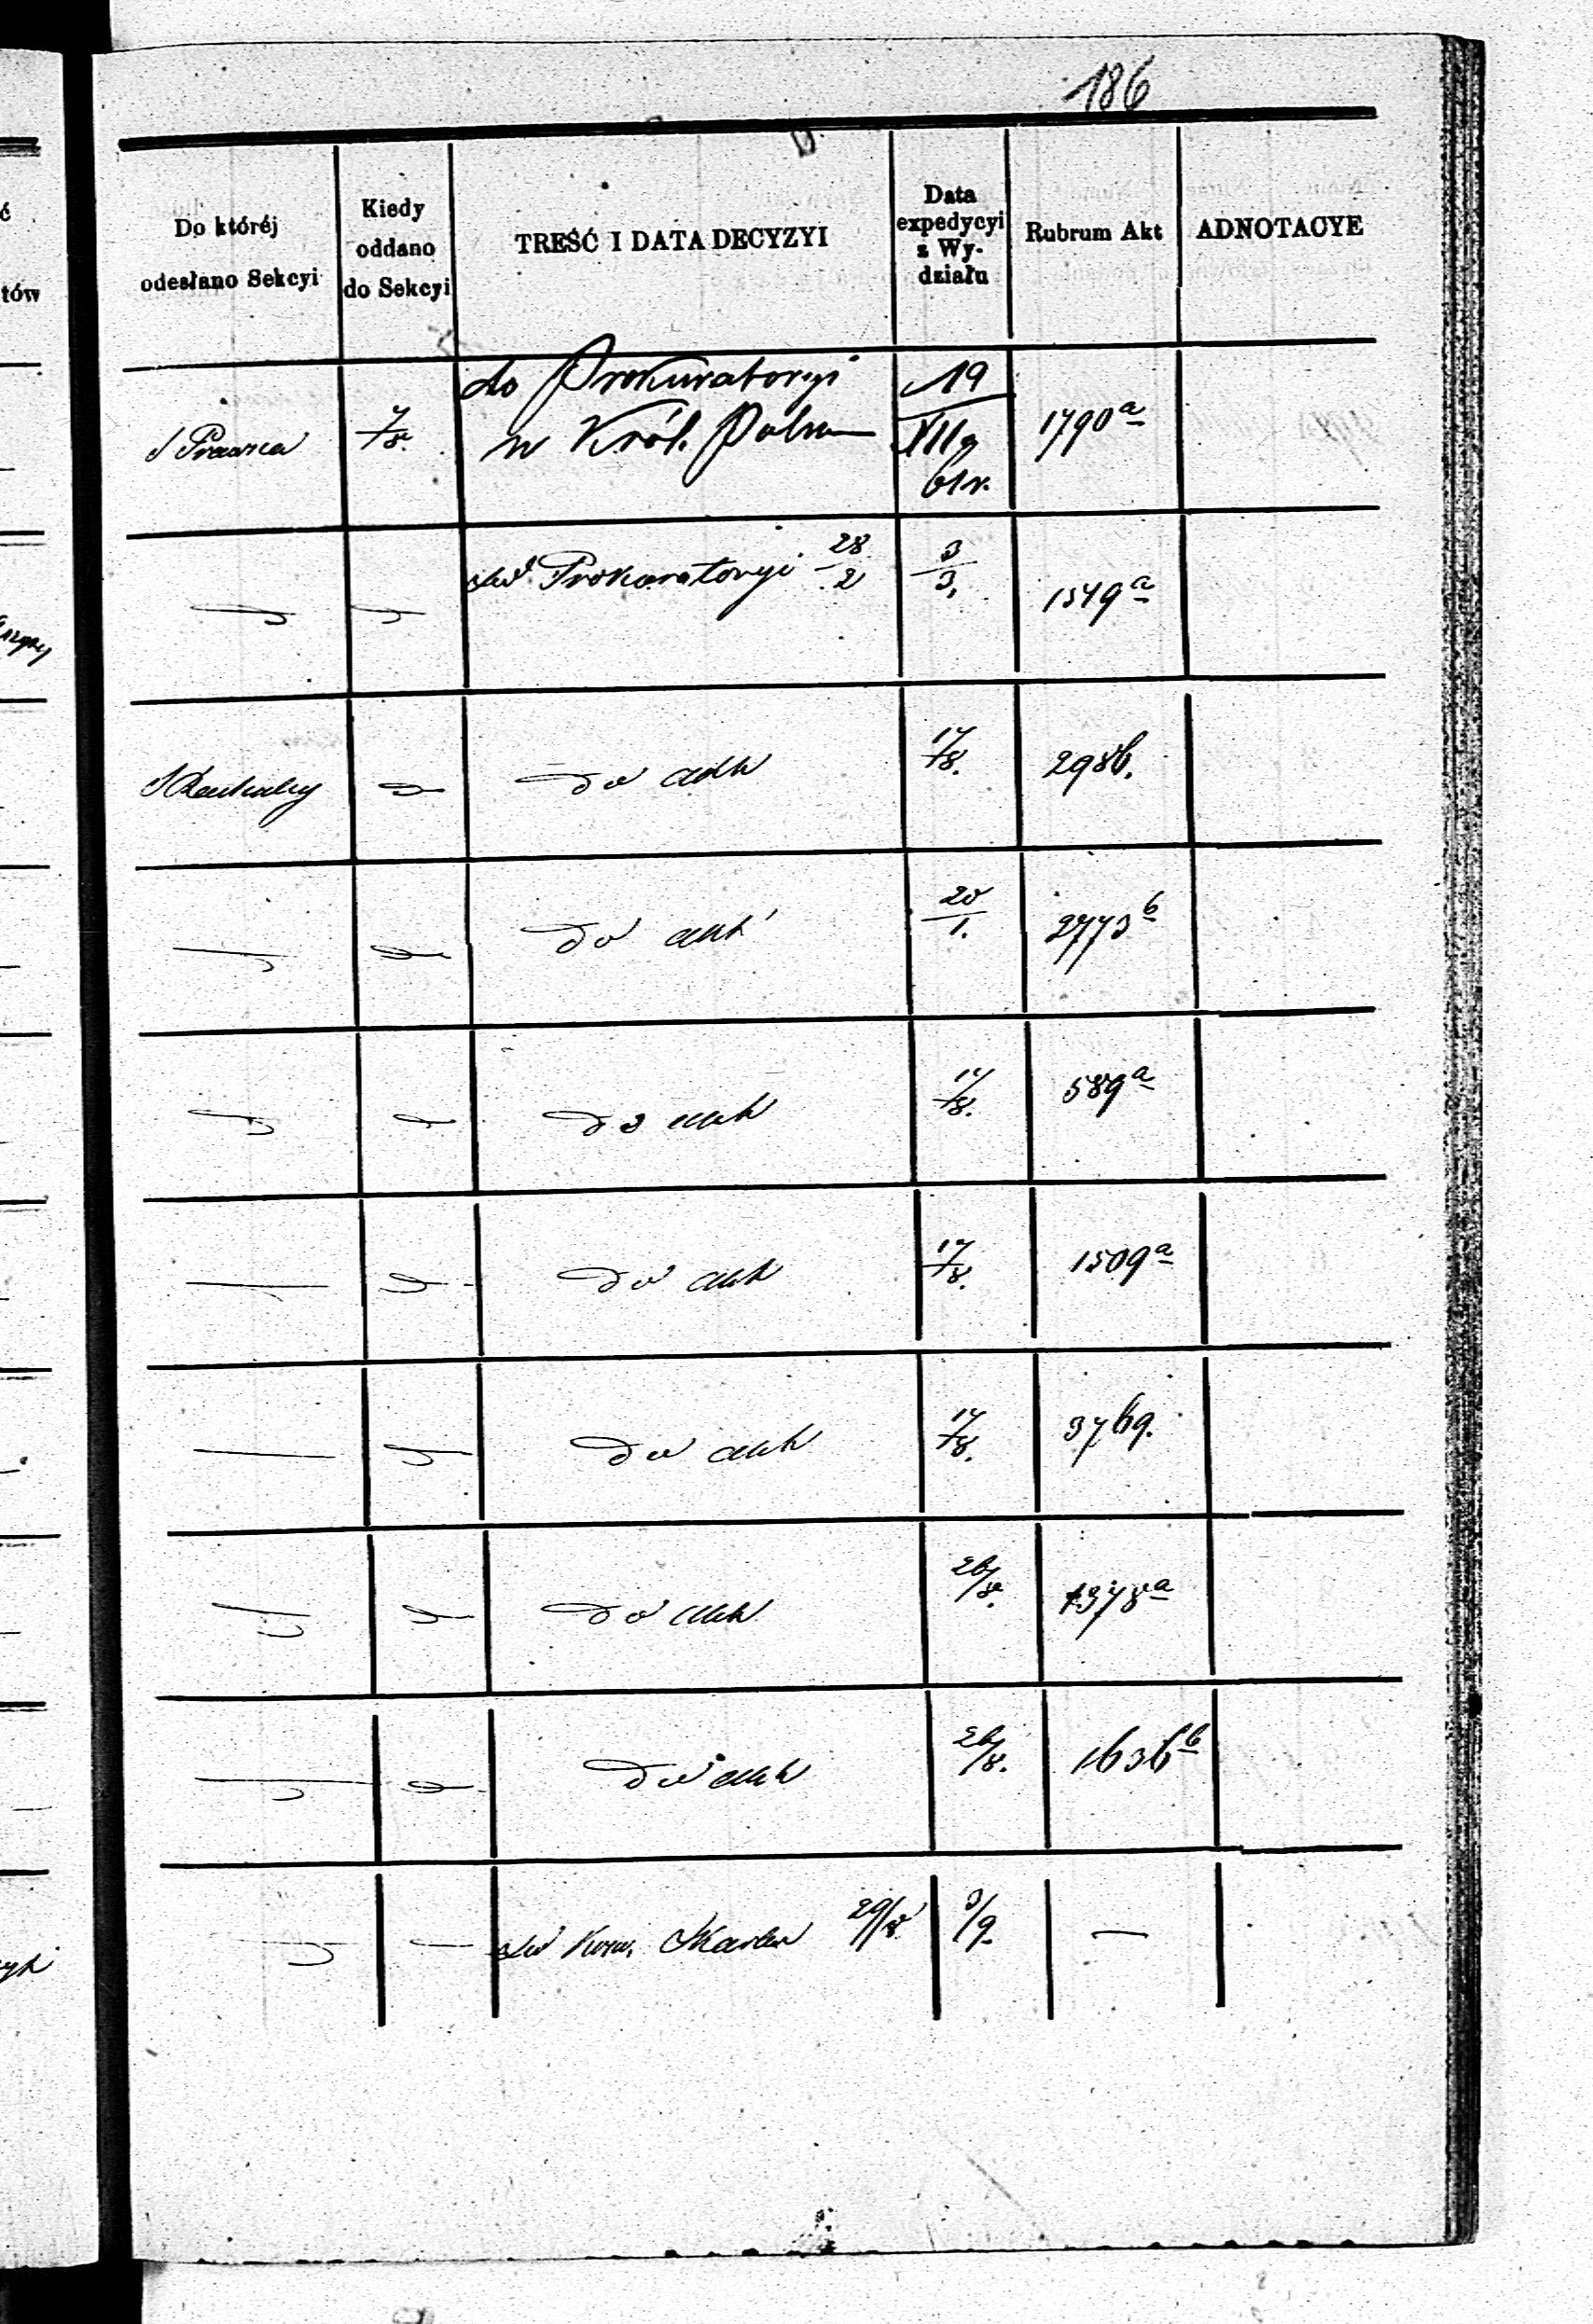 186
ć
tów
Do któréj
odesłano Sekcyi
Kiedy
oddano
do Sekcyi
TREŚĆ I DATA DECYZYI
Data
expedycyi
z Wy-
działu
Rubrum Akt
ADNOTACYE
S Prawna
7/8.
do Prokuratoryi
w Król. Polsk
19
XII
61 r.
1790a
Prokuratoryi 28/2
3/3.
1549a
do akt
17/8.
2986.
do akt
20/1.
2773b
do akt
17/8.
589a
do akt
17/8.
1509a
do akt
17/8.
3769.
do akt
26/8.
1378a
do akt
26/8.
1636b
Kom. Skarbu 29/8
3/9.
—